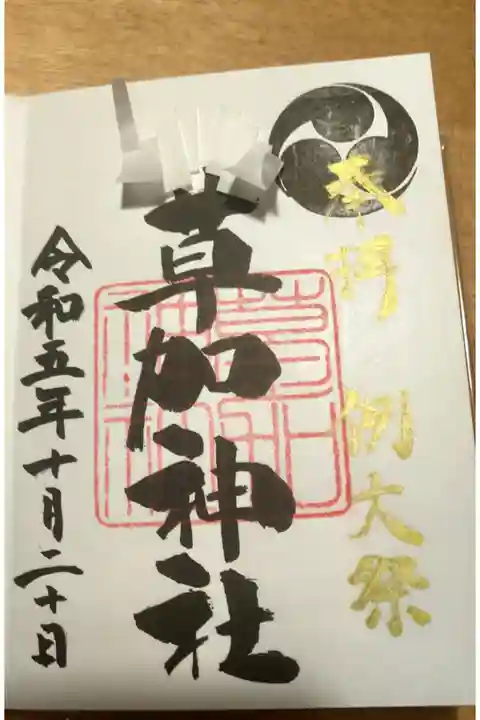 奉拝 例大祭
草加神社
令和五年十月二十日